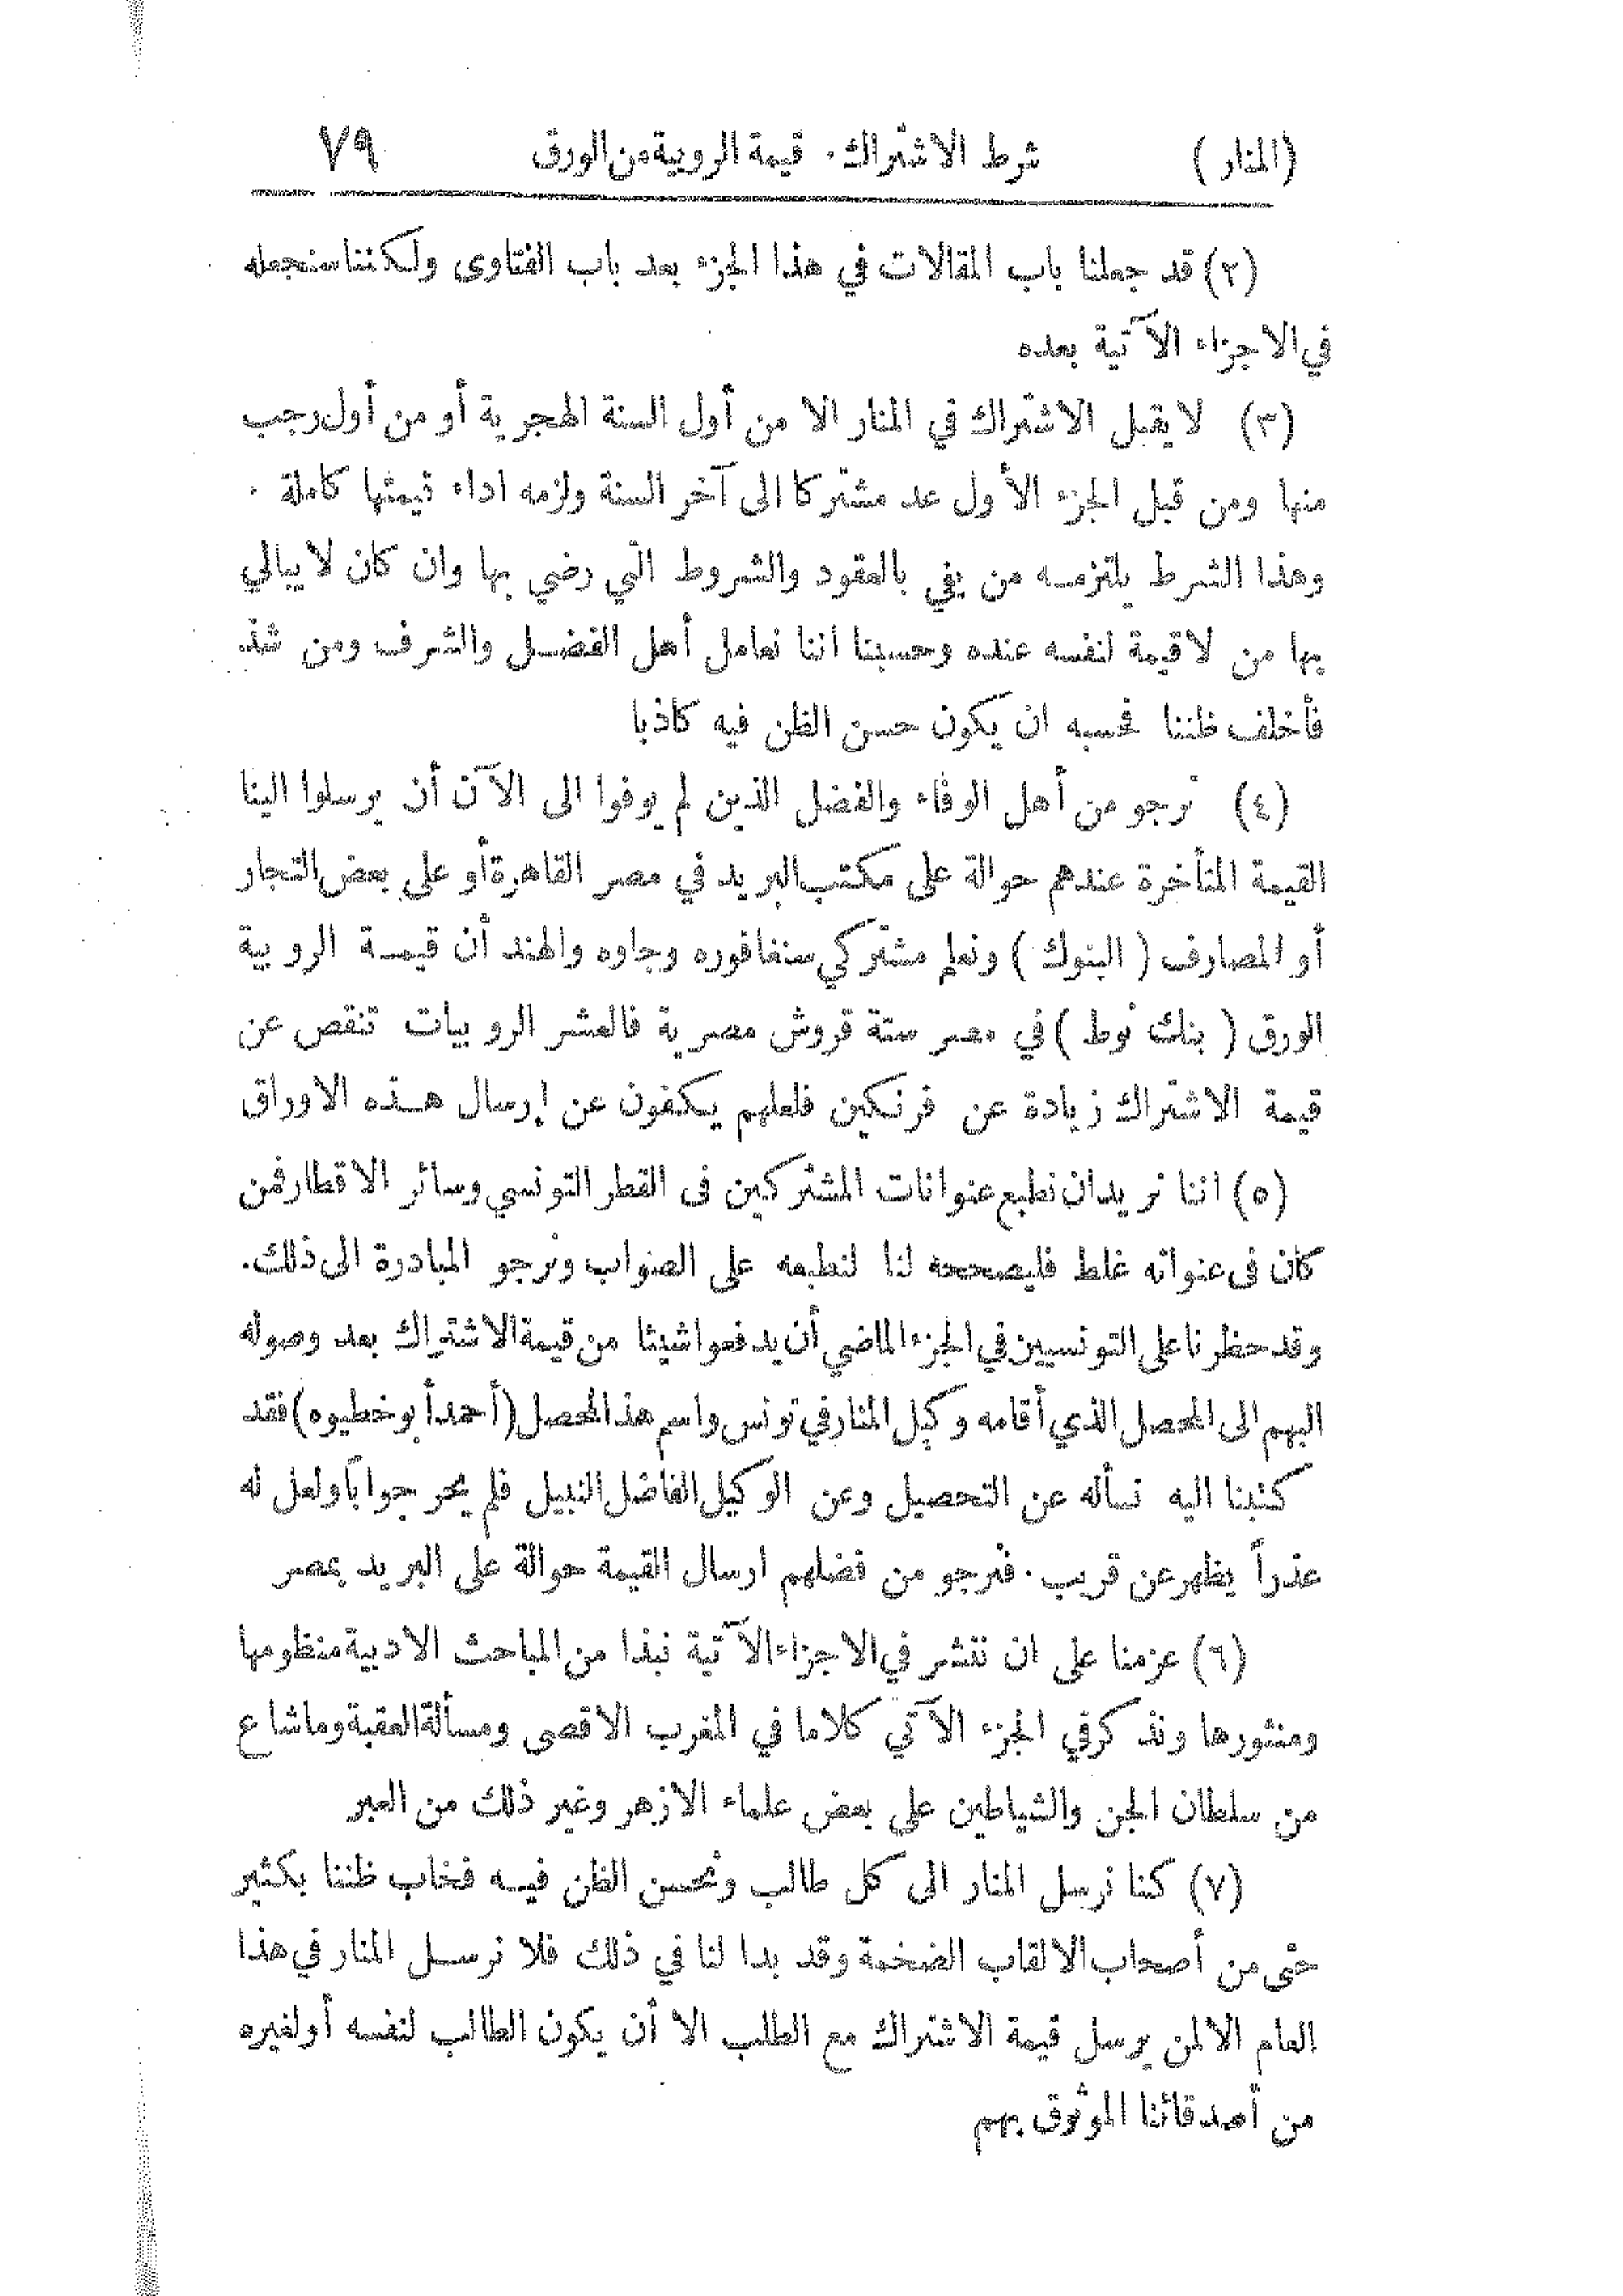 (المنار) شرط الاشتراك. قيمة الروبية من الورق ٧٩
(٢) قد جعلنا باب المقالات في هذا الجزء بعد باب الفتاوى ولكننا سنجعله
في الاجزاء الآتية بعده
(٣) لا يقبل الاشتراك في المنار الا من أول السنة الهجرية أو من أول رجب
منها ومن قبل الجزء الأول عد مشتركا الى آخر السنة ولزمه اداء قيمتها كاملة .
وهذا الشرط يلتزمه من يفي بالعقود والشروط التي رضي بها وان كان لا يبالي
بها من لا قيمة لنفسه عنده وحسبنا اننا نعامل أهل الفضل والشرف ومن شذ
فأخلف ظننا فحسبه ان يكون حسن الظن فيه كاذبا
(٤) نرجو من أهل الوفاء والفضل الذين لم يوفوا الى الآن أن يرسلوا الينا
القيمة المتأخرة عندهم حوالة على مكتب البريد في مصر القاهرة أو على بعض التجار
أو المصارف ( البنوك ) ونعلم مشتركي سنغافوره وجاوه والهند أن قيمة الروبية
الورق ( بنك نوط ) في مصر ستة قروش مصرية فالعشر الروبيات تنقص عن
قيمة الاشتراك زيادة عن فرنكين فلعلهم يكفون عن إرسال هذه الاوراق
(٥) اننا نريد ان نطبع عنوانات المشتركين فى القطر التونسي وسائر الاقطار فمن
كان فى عنوانه غلط فليصححه لنا لنطبعه على الصواب ونرجو المبادرة الى ذلك.
وقد حظرنا على التونسيين في الجزء الماضي أن يدفعوا شيئا من قيمة الاشتراك بعد وصوله
اليهم الى المحصل الذي أقامه وكيل المنار في تونس واسم هذا المحصل (أحمد أبو خطيوه) فقد
كتبنا اليه نسأله عن التحصيل وعن الوكيل الفاضل النبيل فلم يحر جواباً ولعل له
عذراً يظهر عن قريب. فنرجو من فضلهم ارسال القيمة حوالة على البريد بمصر
(٦) عزمنا على ان ننشر في الاجزاء الآتية نبذا من المباحث الادبية منظومها
ومنثورها ونذكر في الجزء الآتي كلاما في المغرب الاقصى ومسألة العقبة وما شاع
من سلطان الجن والشياطين على بعض علماء الازهر وغير ذلك من العبر
(٧) كنا نرسل المنار الى كل طالب ونحسن الظن فيه فخاب ظننا بكثير
حتى من أصحاب الالقاب الضخمة وقد بدا لنا في ذلك فلا نرسل المنار في هذا
العام الا لمن يرسل قيمة الاشتراك مع الطلب الا أن يكون الطالب لنفسه أو لغيره
من أصدقائنا الموثوق بهم